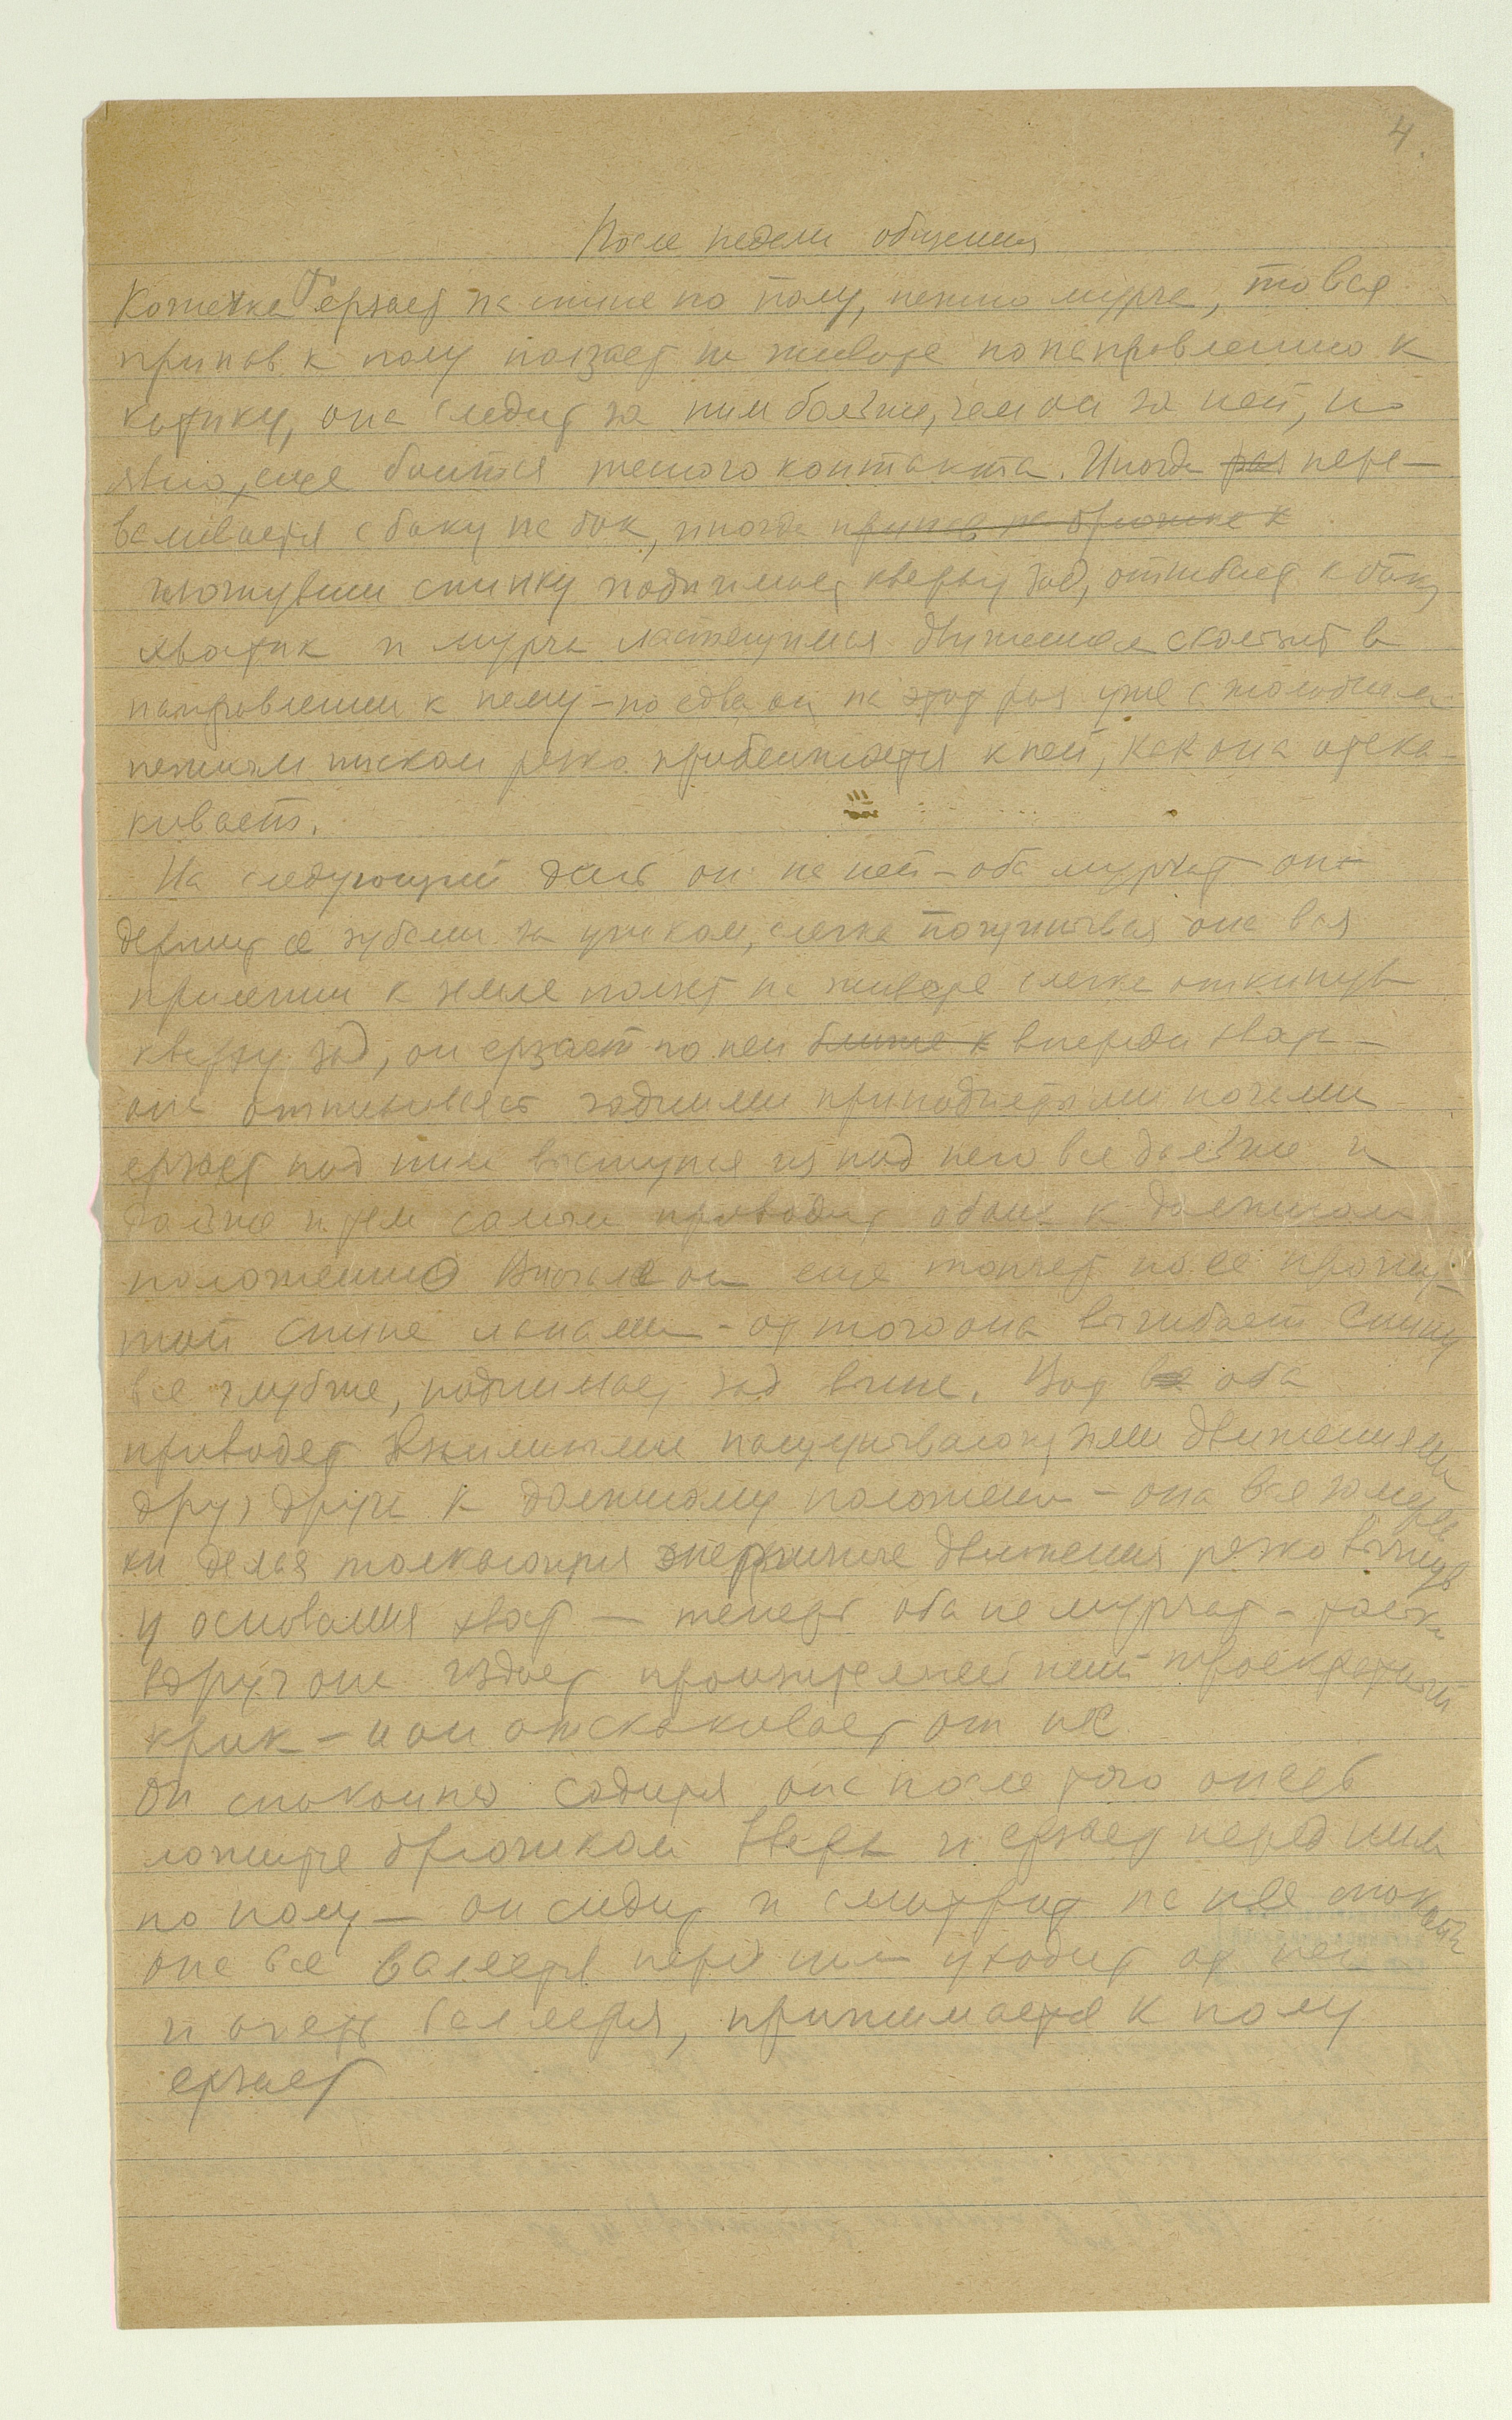 4.
После недели общения
Кошечка ерзает на спине по полу, нежно мурча, то вся
припав к полу ползает на животе по направлению к
котику, она следит за ним больше, чем он за ней, но
явно еще боится тесного контакта. Иногда раз пере-
валивается с боку на бок, иногда припав на брюшке к
спинку поднимает кверху зад, отгибает к боку
хвостик и мурча движением скользит в
направлении к нему – но едва он на этот раз уже с
нежным писком резко приближается к ней, как она отска-
кивает.
На следующий день он на ней – оба мурчат он
держит ее зубами за ушком, слегка она вся
прилегши к земле ползет на животе слегка откинув
кверху зад, он ерзает по ней ближе к впереди хвост –
она отталкивается задними приподнятыми ногами
ерзает под ним выступая из под него все дальше и
дальше и тем самым приводит обоих к должному
положению Вначале он еще топчет по ее прогну-
той спине лапами – от того она выгибает спину
все глубже, поднимает зад выше. Вот все оба
приводят движениями
друг друга к должному положению – она все
делая толкающия энергичные движения резко
у основания хвост — теперь оба не мурчат –
вдруг она издает пронзительный троекратный
крик – и он отскакивает от нее
Он спокойно садится она после того опять
ложится брюшком вверх и ерзает перед ним
по полу – он сидит и смотрит на нее
она все валяется перед ним уходит от нее
и опять валяется, прижимается к полу
ерзает